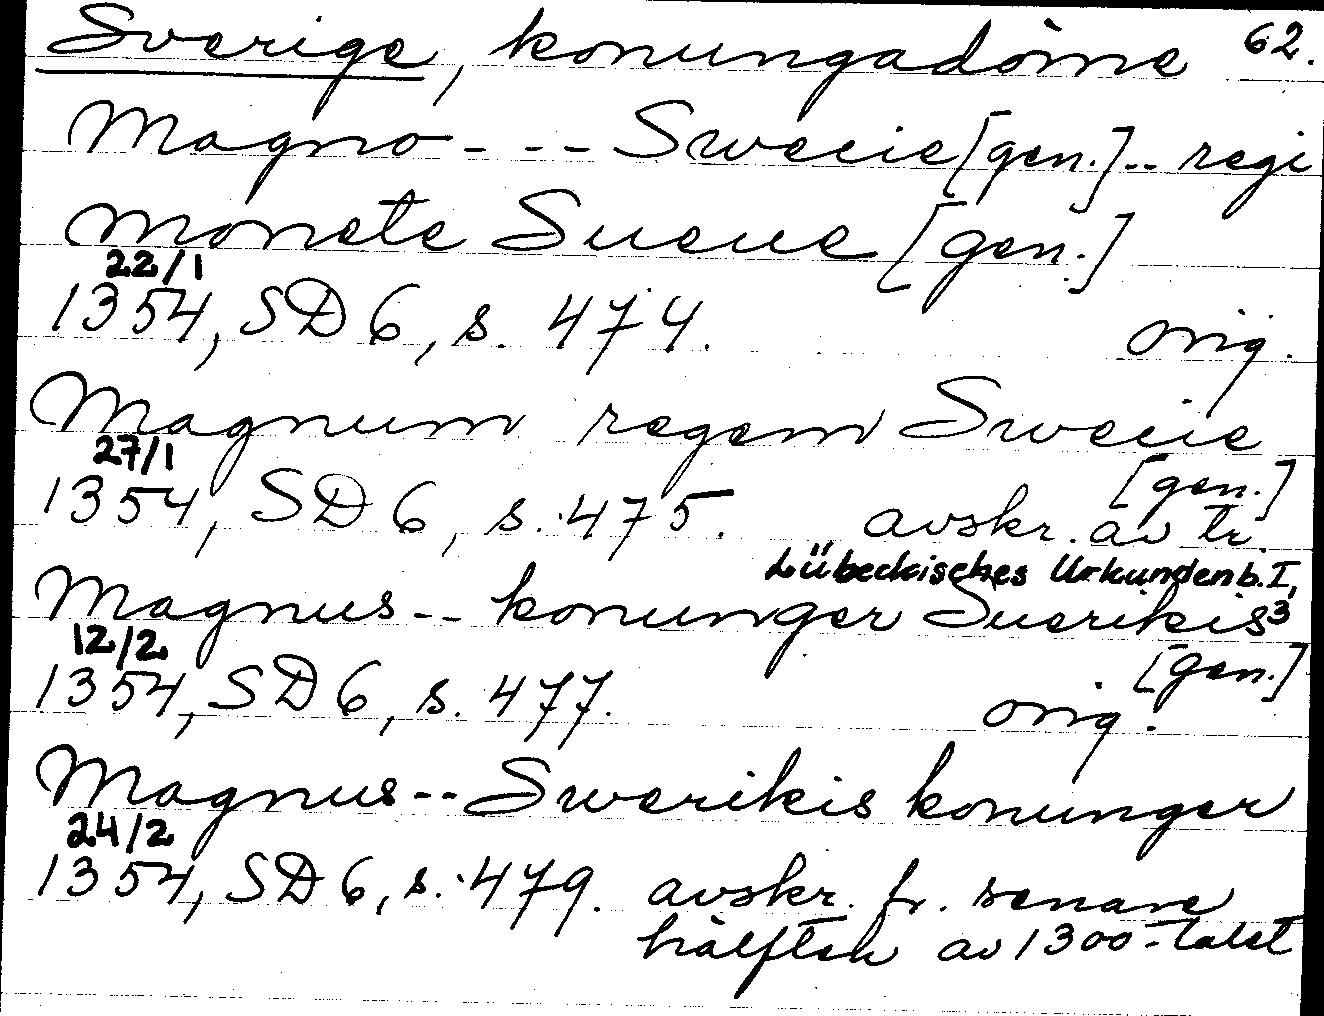 Sverige, konungadöme 62.
Magno --- Sweeie [gen.] -- regi
monete Sueue [gen.]
22/1
1354, SD 6, s. 474. orig.
Magnum regem Sweiie
27/1 [gen.]
1354, SD 6, s. 475. avskr. av tr.
Lübeckisches Urkundenb. I, 3
Magnus -- konunger Suerikis
12/2 [gen.]
1354, SD 6, s. 477. orig.
Magnus -- Swerikis konunger
24/2
1354, SD 6, s. 479. avskr. fr. senare
hälften av 1300-talet